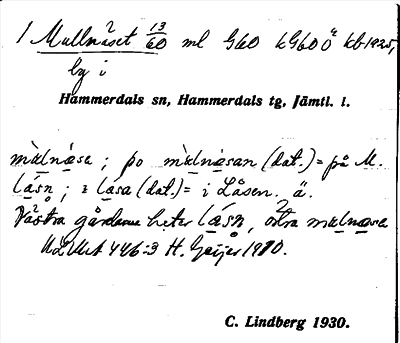 1 Mullnäset 13/60 ml G60 kG60 Ö kb 1925,
by i
Hammerdals sn, Hammerdals tg, Jämtl. l.
mulnæsa ; po mulnæsan (dat.) = på M.
låsn ; i låsa (dat.) = i Låsen. ä.
Västra gårdarna heter låsn, östra mulnæsa
ULMA 446:3 H. Geijer 1910.
C. Lindberg 1930.